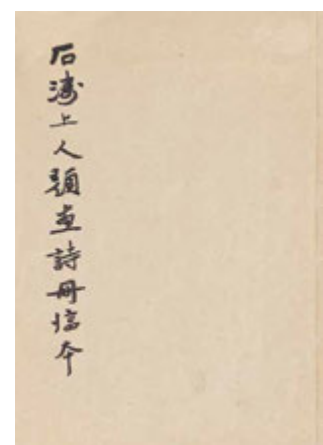 石濤上人題畫詩冊稿本